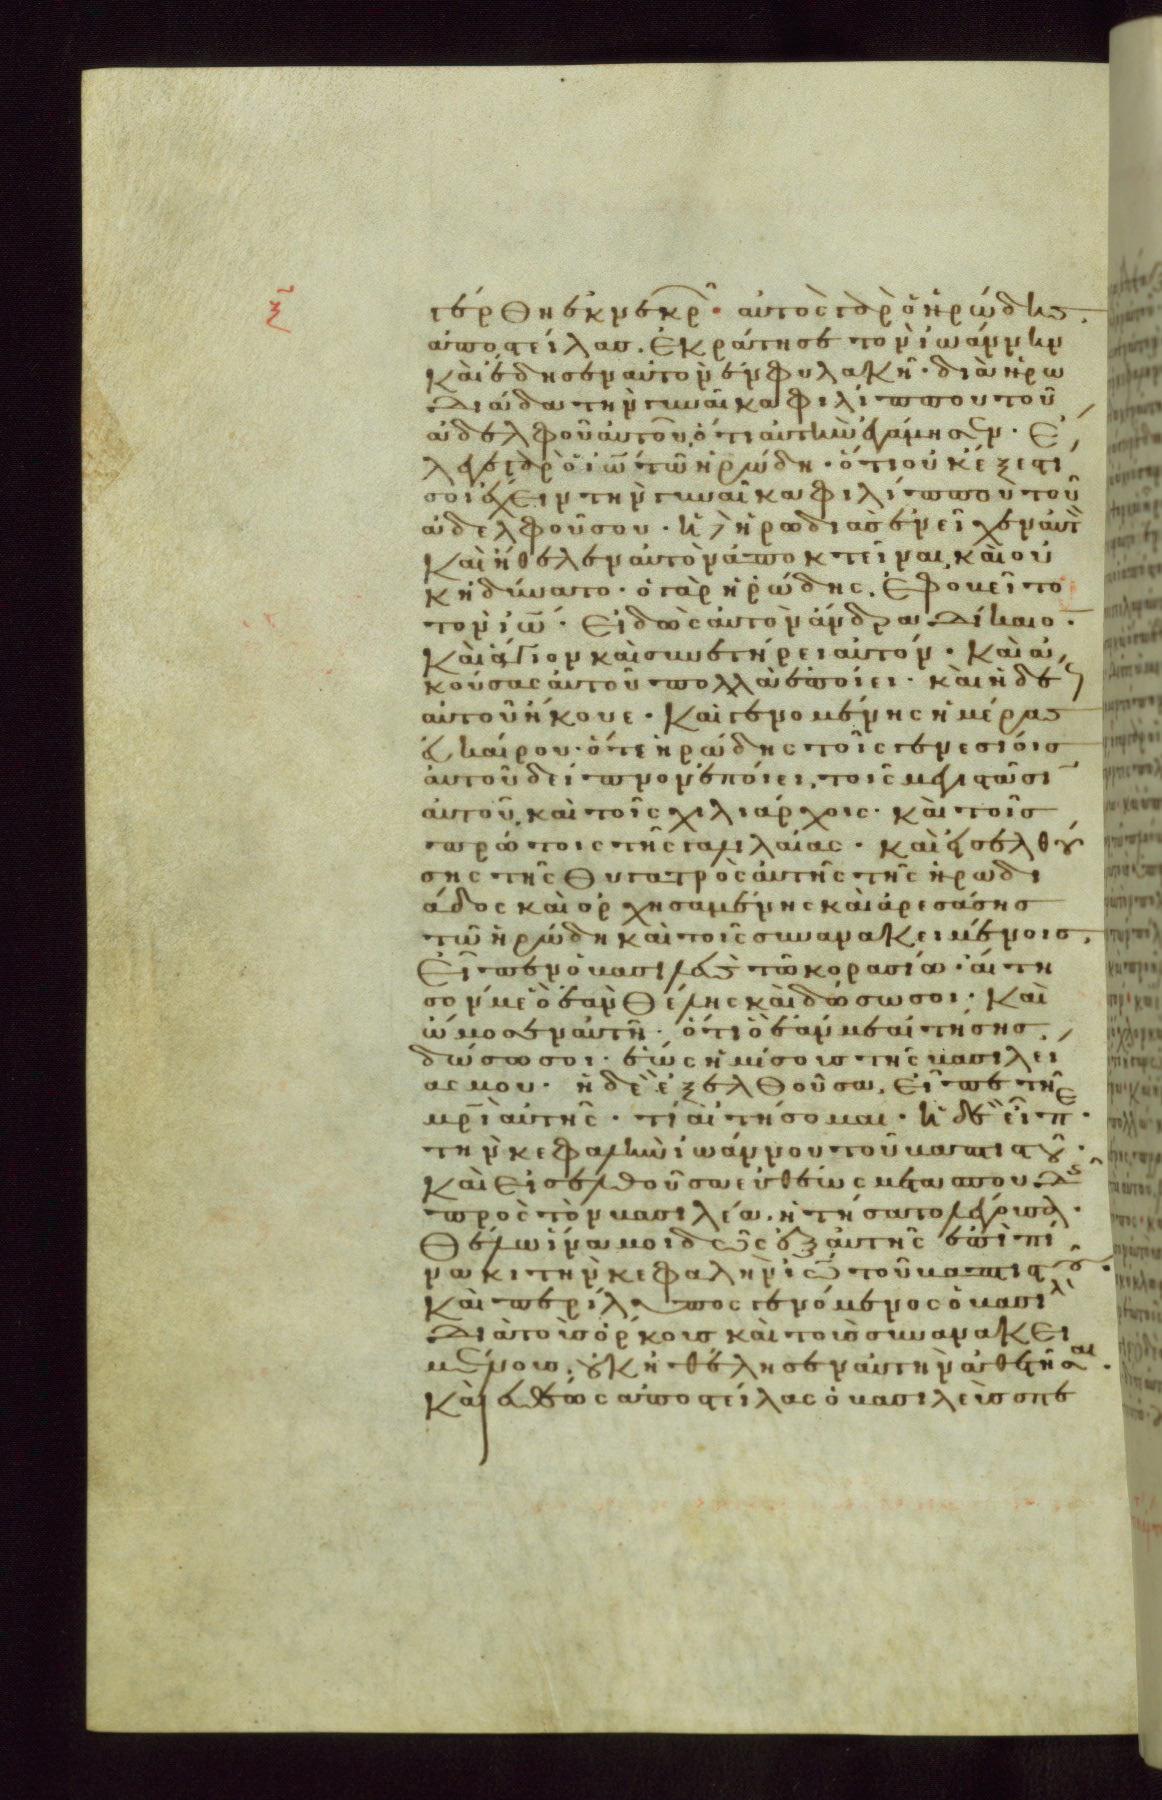 ξ̃
γέρθη ἐκ νεκρ̑· αὐτὸς γὰρ ὁ ἡρώδης.
ἀποστείλας. ἐκράτησε τὸν ἰωάννην
καὶ ἔδησεν αὐτὸν ἐν φυλακῇ· διὰ ἡρω
διάδα τὴν γυναῖκα φιλίππου τοῦ
ἀδελφοῦ αὐτοῦ, ὅτι αὐτὴν ἐγάμησεν· ἔ
λεγε γὰρ ὁ ἰω̅ τῶ ἡρώδη· ὅτι οὐκ ἔξεστι
σοι ἔχειν τὴν γυναῖκα φιλίππου τοῦ
ἀδελφοῦ σου· ἡ δὲ ἡρωδιὰς ἐνεῖχεν αὐτ
καὶ ἤθελεν αὐτὸν ἀποκτεῖναι, καὶ οὐ
κ ἠδύνατο· ὁ γὰρ ἡρώδης. ἐφοβεῖτο
τὸν ἰω̅· εἰδὼς αὐτὸν ἄνδρα δίκαιο̅·
καὶ ἅγιον καὶ συνετήρει αὐτόν· καὶ ἀ
κούσας αὐτοῦ πολλὰ ἐποίει· καὶ ἡδέ
αὐτοῦ ἤκουε· καὶ γενομένης ἡμέρας
εὐκαίρου· ὅτε ἡρώδης τοῖς γενεσίοις
αὐτοῦ δεῖπνον ἐποίει, τοῖς μεγιστᾶσι
αὐτοῦ, καὶ τοῖς χιλιάρχοις· καὶ τοῖς
πρώτοις τῆς γαλιλαίας· καὶ εἰσελθού
σης τῆς θυγατρὸς αὐτῆς τῆς ἡρωδι
άδος καὶ ὀρχησαμένης καὶ ἀρεσάσης
τῶ ἡρώδη καὶ τοῖς συνανακειμένοις.
εἶπεν ὁ βασιλεὺς τῶ κορασίω· αἴτη
σον με ὃ ἐὰν θέλης καὶ δώσω σοι· καὶ
ὤμοσεν αὐτῆ· ὅτι ὃ ἐάν με αἰτήσης,
δώσω σοι· ἕως ἡμίσους τῆς βασιλεί
ας μου· ἡ δὲ ἐξελθοῦσα, εἶπε τῆ
μρ̅ὶ αὐτῆς· τί αἰτήσομαι· ἡ δὲ εἶπε·
τὴν κεφαλὴν ἰωάννου τοῦ βαπτιστοῦ·
καὶ εἰσελθοῦσα εὐθέως μετὰ σπουδῆς
πρὸς τὸν βασιλέα. ἠτήσατο λέγουσα·
θέλω ἵνα μοι δῶς ἐξ αὐτῆς ἐπὶ πί
νακι τὴν κεφαλὴν ἰω̅ τοῦ βαπτιστοῦ·
καὶ περίλυπος γενόμενος ὁ βασιλ
διὰ τοὺς ὅρκους καὶ τοὺς συνανακει
μένους. οὐκ ἠθέλησεν αὐτὴν ἀθετῆσαι·
καὶ εὐθέως ἀποστείλας ὁ βασιλεὺς σπε